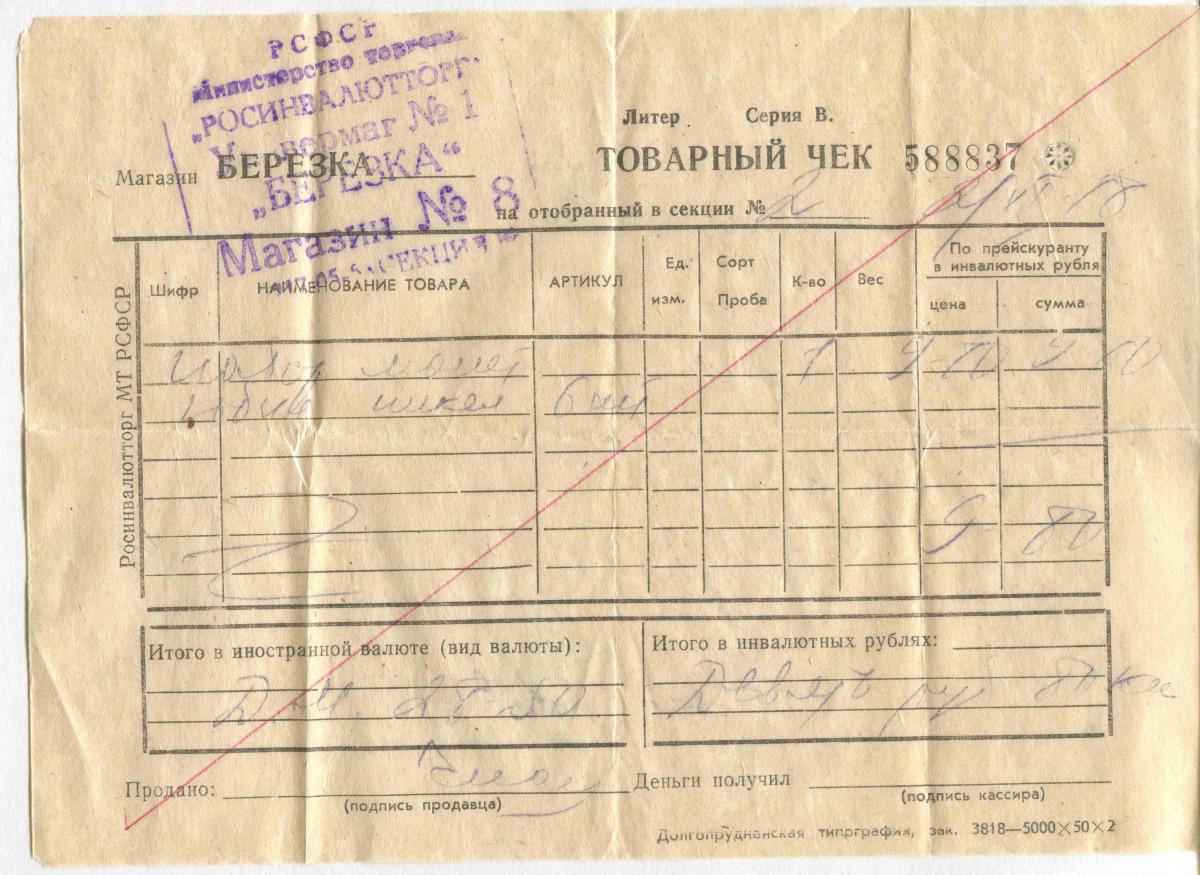 РСФСР
Министерство
„РОСИНВАЛЮТТОРГ"
№ 1
„БЕРЕЗКА"
Магазин № 8
Литер Серия В.
Магазин БЕРЕЗКА ТОВАРНЫЙ ЧЕК 588837
на отобранный в секции № 2
Росинвалютторг МТ РСФСР
Шифр НАИМЕНОВАНИЕ ТОВАРА АРТИКУЛ Ед. изм. Сорт Проба К-во Вес По прейскуранту в инвалютных рубля
цена сумма
монет 1 9-80 9-80
никел 6 шт
9-80
Итого в иностранной валюте (вид валюты): Итого в инвалютных рублях:
Д.М. Девять руб 80 коп
Продано: Деньги получил
(подпись продавца) (подпись кассира)
Долгопрудненская типография, зак. 3818—5000×50×2